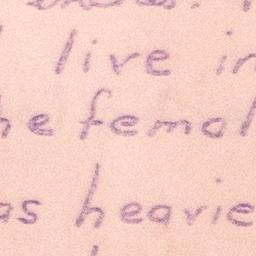 live in
he femal
as heavie